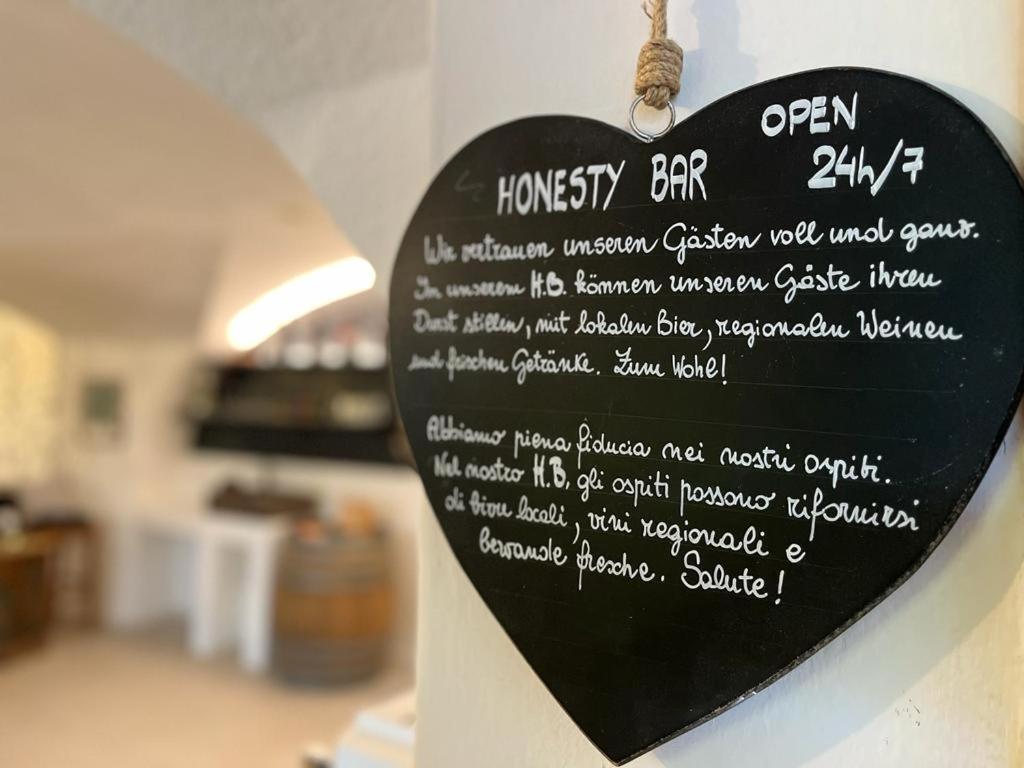 OPEN
24h/7
HONESTY BAR
Wir vertrauen unseren Gästen voll und ganz.
In unserem H.B. können unseren Gäste ihren
Durst stillen, mit lokalen Bier, regionalen Weinen
und frischen Getränke. Zum Wohl!
Abbiamo piena fiducia nei nostri ospiti.
Nel nostro H.B. gli ospiti possono rifornirsi
di birre locali, vini regionali e
bevande fresche. Salute!